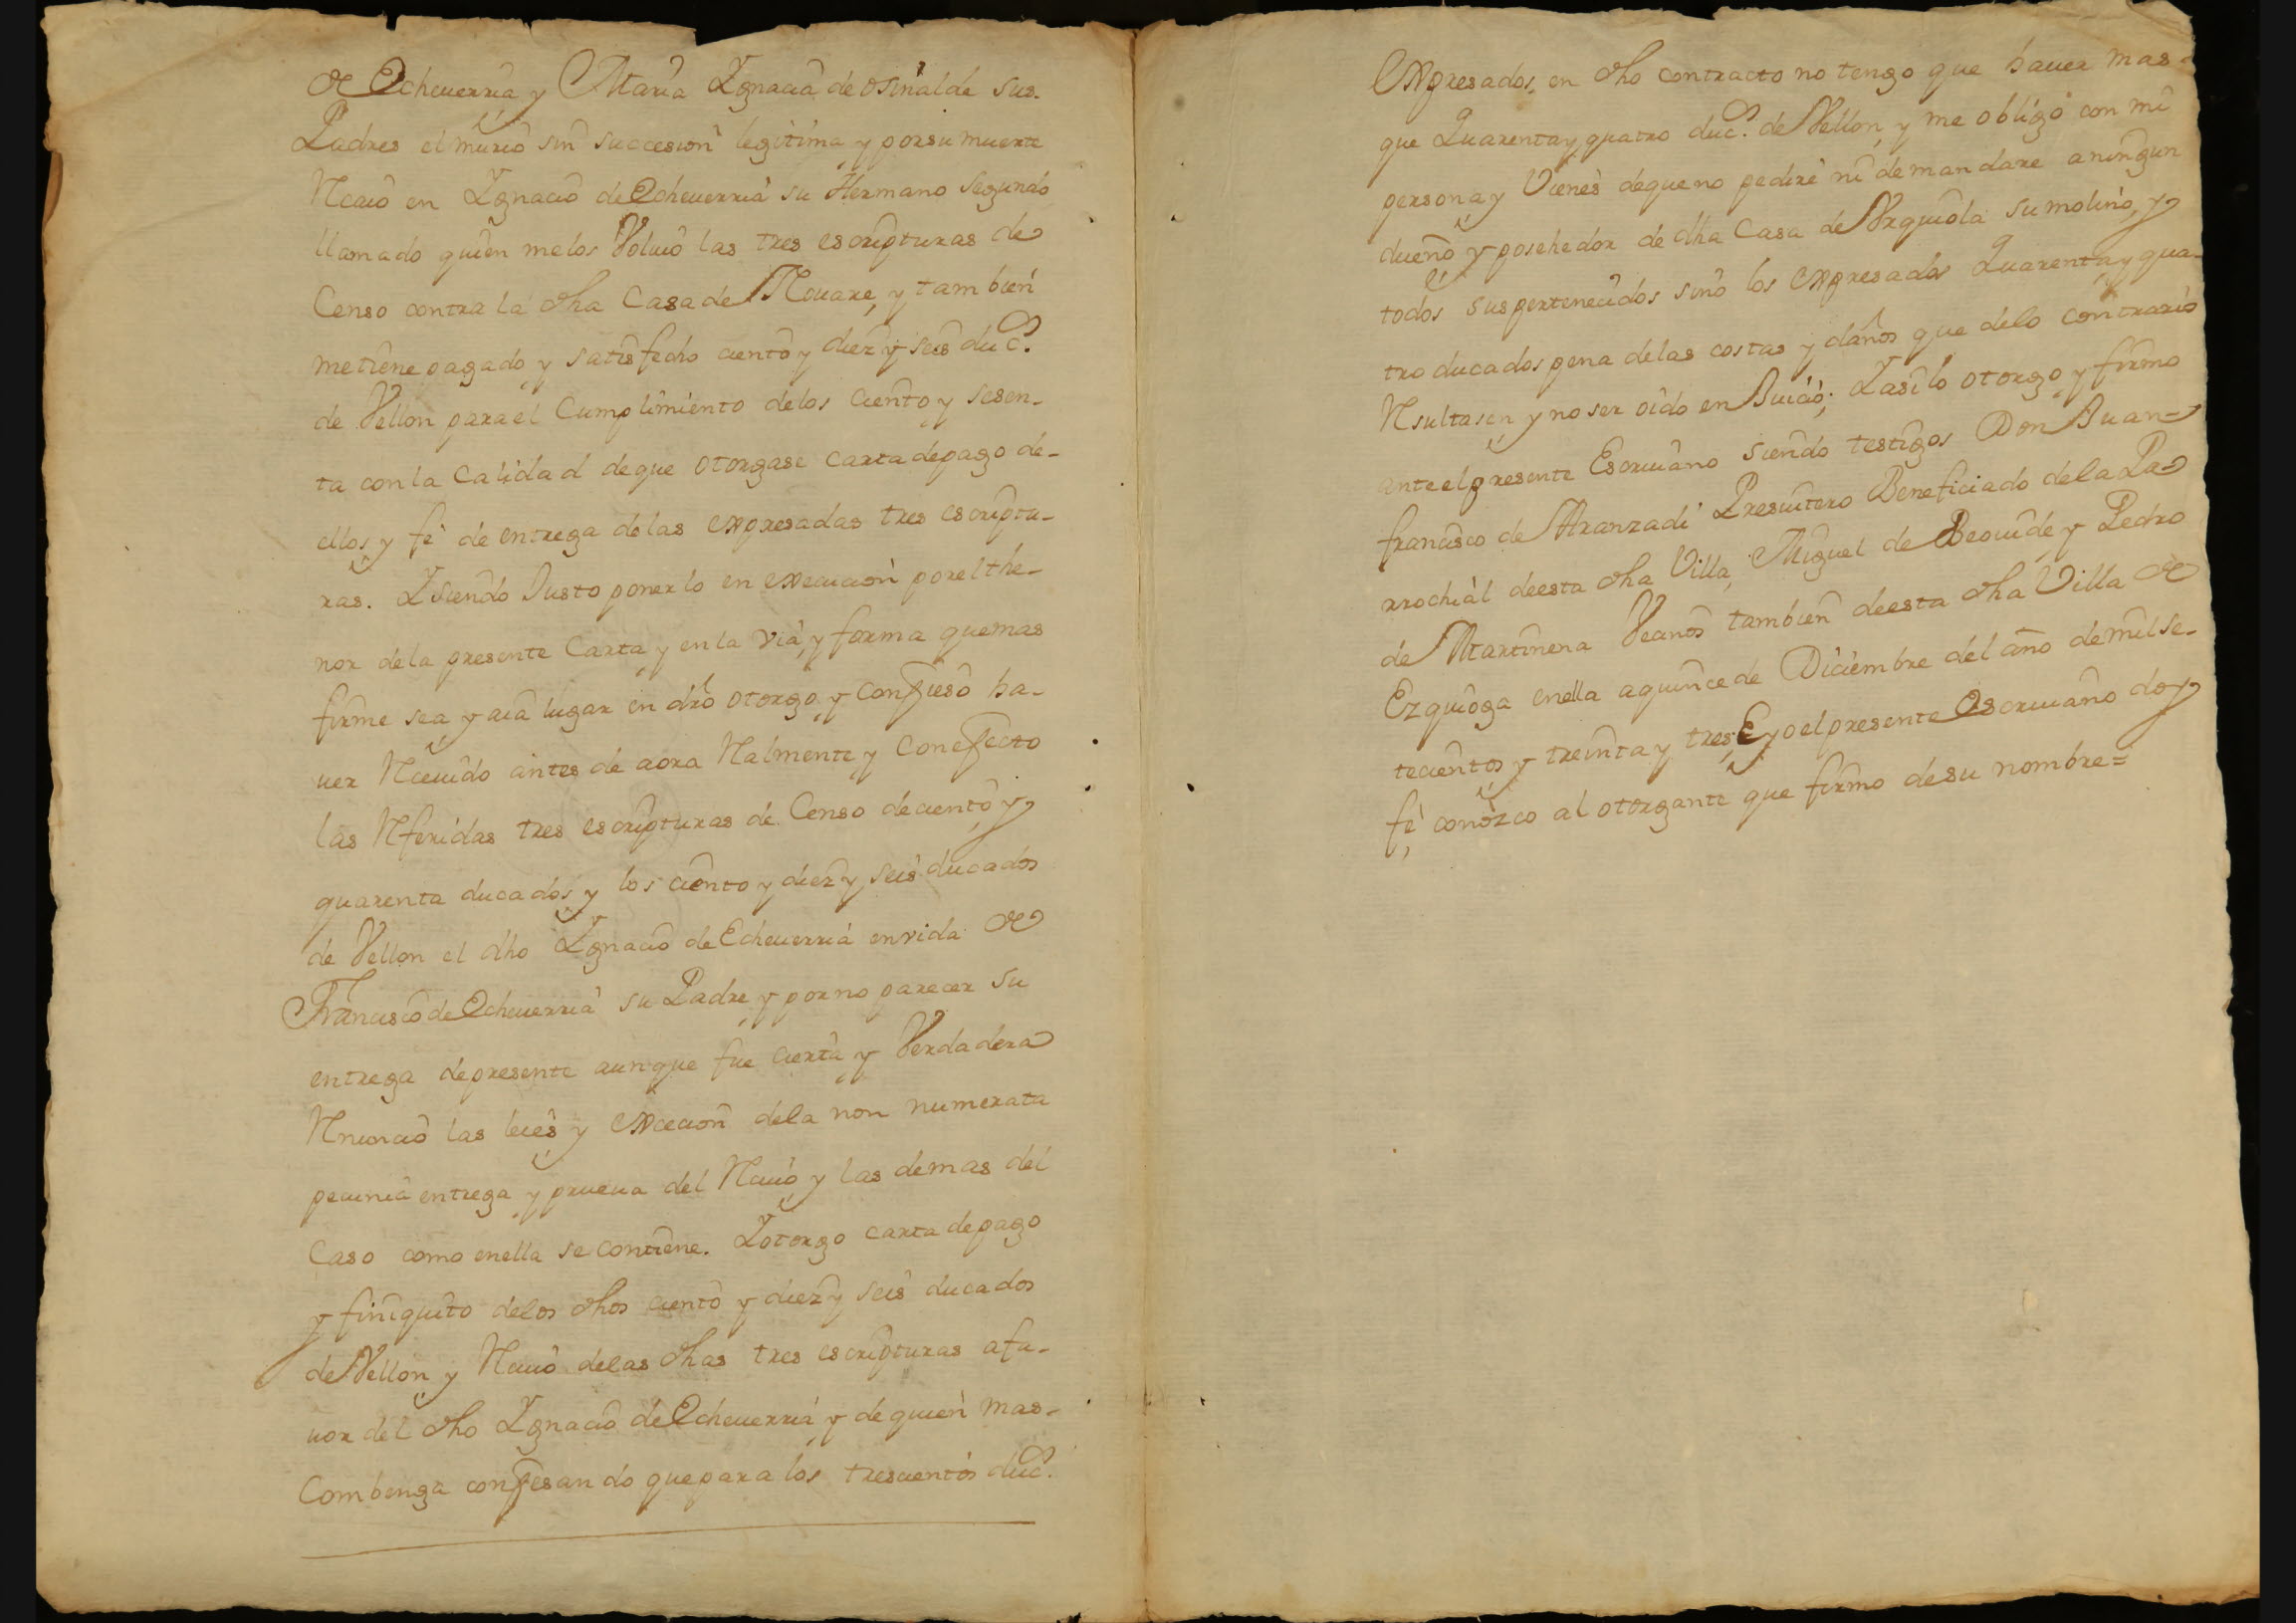 de Echeuerria y Maria Ygnacia de osinalde sus.
Padres el murio sin succesion legitima y por su muerte
Recaio en Ygnacio de Echeuerria su Hermano segundo
llamado quien me los Voluio las tres escripturas de
Censo contra la dha Casa de Rouare, y tambien
me tiene pagado y satisfecho ciento y diez y seis duc.s
de Vellon para el Cumplimiento de los Ciento y sesen-
ta con la Calidad de que otorgase carta de pago de-
ellos y fe de entrega de las expresadas tres escriptu-
ras. Y siendo Justo ponerlo en execucion por el the-
nor de la presente Carta y en la via, y forma que mas
firme sea y aia lugar en dro otorgo y confieso ha-
uer Receuido antes de aora Realmente y Con efecto
las Referidas tres escripturas de Censo de ciento y
quarenta ducados y los ciento y diez y seis ducados
de Vellon el dho Ygnacio de Echeuerria en vida de
Francisco de Echeuerria su Padre y por no parecer su
entrega de presente aunque fue cierta y Verdadera
Renuncio las leies y excecion de la non numerata
pecunia entrega y prueua del Reciuo y las demas del
Caso como en ella se contiene. Y otorgo carta de pago
y finiquito de los dhos ciento y diez y seis ducados
de Vellon y Reciuo de las dhas tres escripturas a fa-
uor del dho Ygnacio de Echeuerria y de quien mas-
Combenga confesando que para los trescientos duc.s
Expresados, en dho contracto no tengo que hauer mas-
que Quarenta y quatro duc.s de Vellon, y me obligo con mi
persona y Vienes de que no pedire ni demandare a ningun
dueño y posehedor de dha Casa de Vrquiola su molino, y
todos sus pertenecidos sino los expresados Quarenta y qua-
tro ducados pena de las costas y daños que de lo contrario
Resultasen y no ser oido en Juicio; Y asi lo otorgo y firmo
ante el presente Escriuano siendo testigos Don Juan-
francisco de Aranzadi Presuitero Beneficiado de la Pa-
rrochial de esta dha Villa, Miguel de Beouide y Pedro
de Martinena Vecinos tambien de esta dha Villa de
Ezquioga en ella a quince de Diciembre del año de mil se-
tecientos y treinta y tres; E yo el presente Escriuano doy
fe conozco al otorgante que firmo de su nombre =